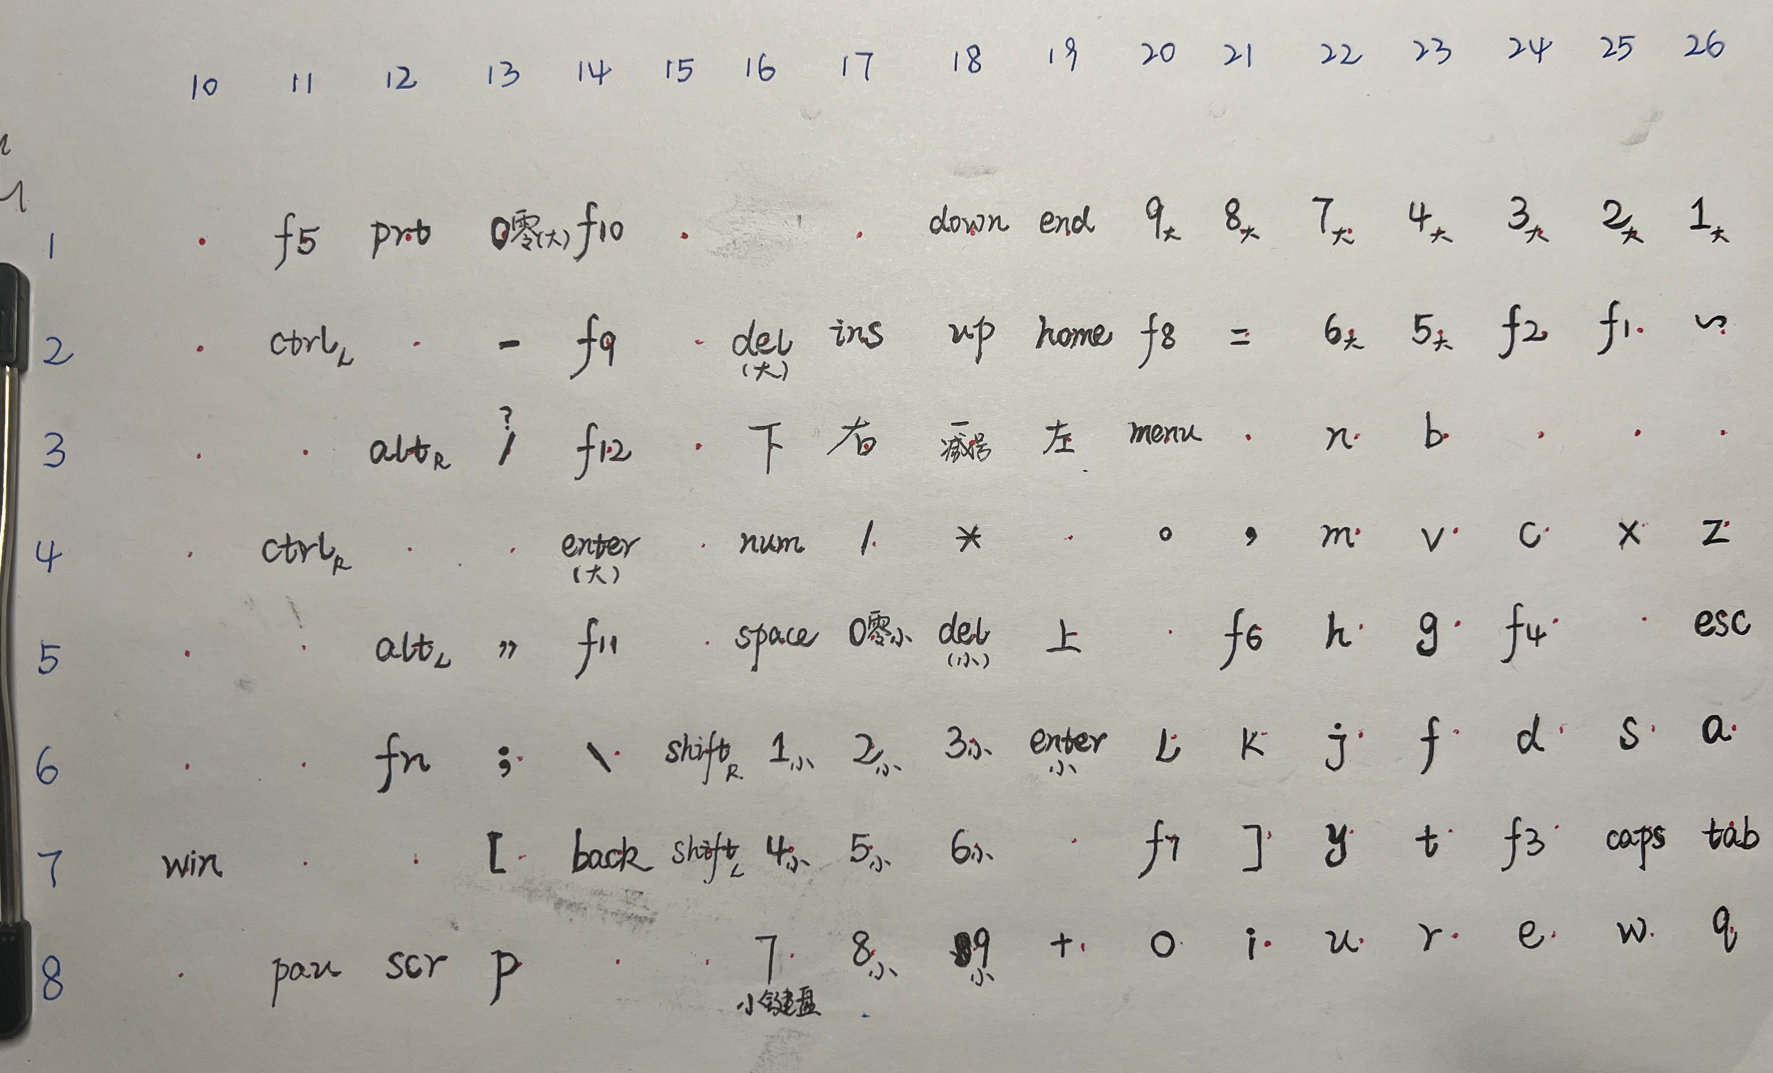 10 11 12 13 14 15 16 17 18 19 20 21 22 23 24 25 26
1 . f5 prt 0零(大) f10 . . down end 9大 8大 7大 4大 3大 2大 1大
2 . ctrl L . - f9 . del(大) ins up home f8 = 6大 5大 f2 f1 ~
3 . . alt R ? / f12 . 下 右 -减号 左 menu . n b . . .
4 . ctrl R . . enter(大) . num / * . 。 , m v c x z
5 . . alt L " f11 . space 0零小 del(小) 上 . f6 h g f4 . esc
6 . . fn ; \ shift R 1小 2小 3小 enter小 L k j f d s a
7 win . . [ back shift L 4小 5小 6小 . f7 ] y t f3 caps tab
8 . pau scr p . . 7小键盘 8小 9小 + o i u r e w q